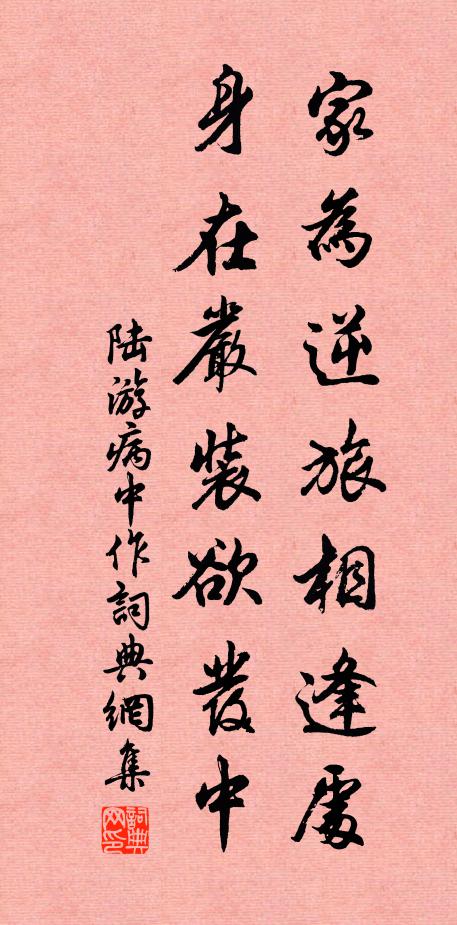 家為逆旅相逢處
身在嚴裝欲發中
陸游病中作詞典網集
詞典网印